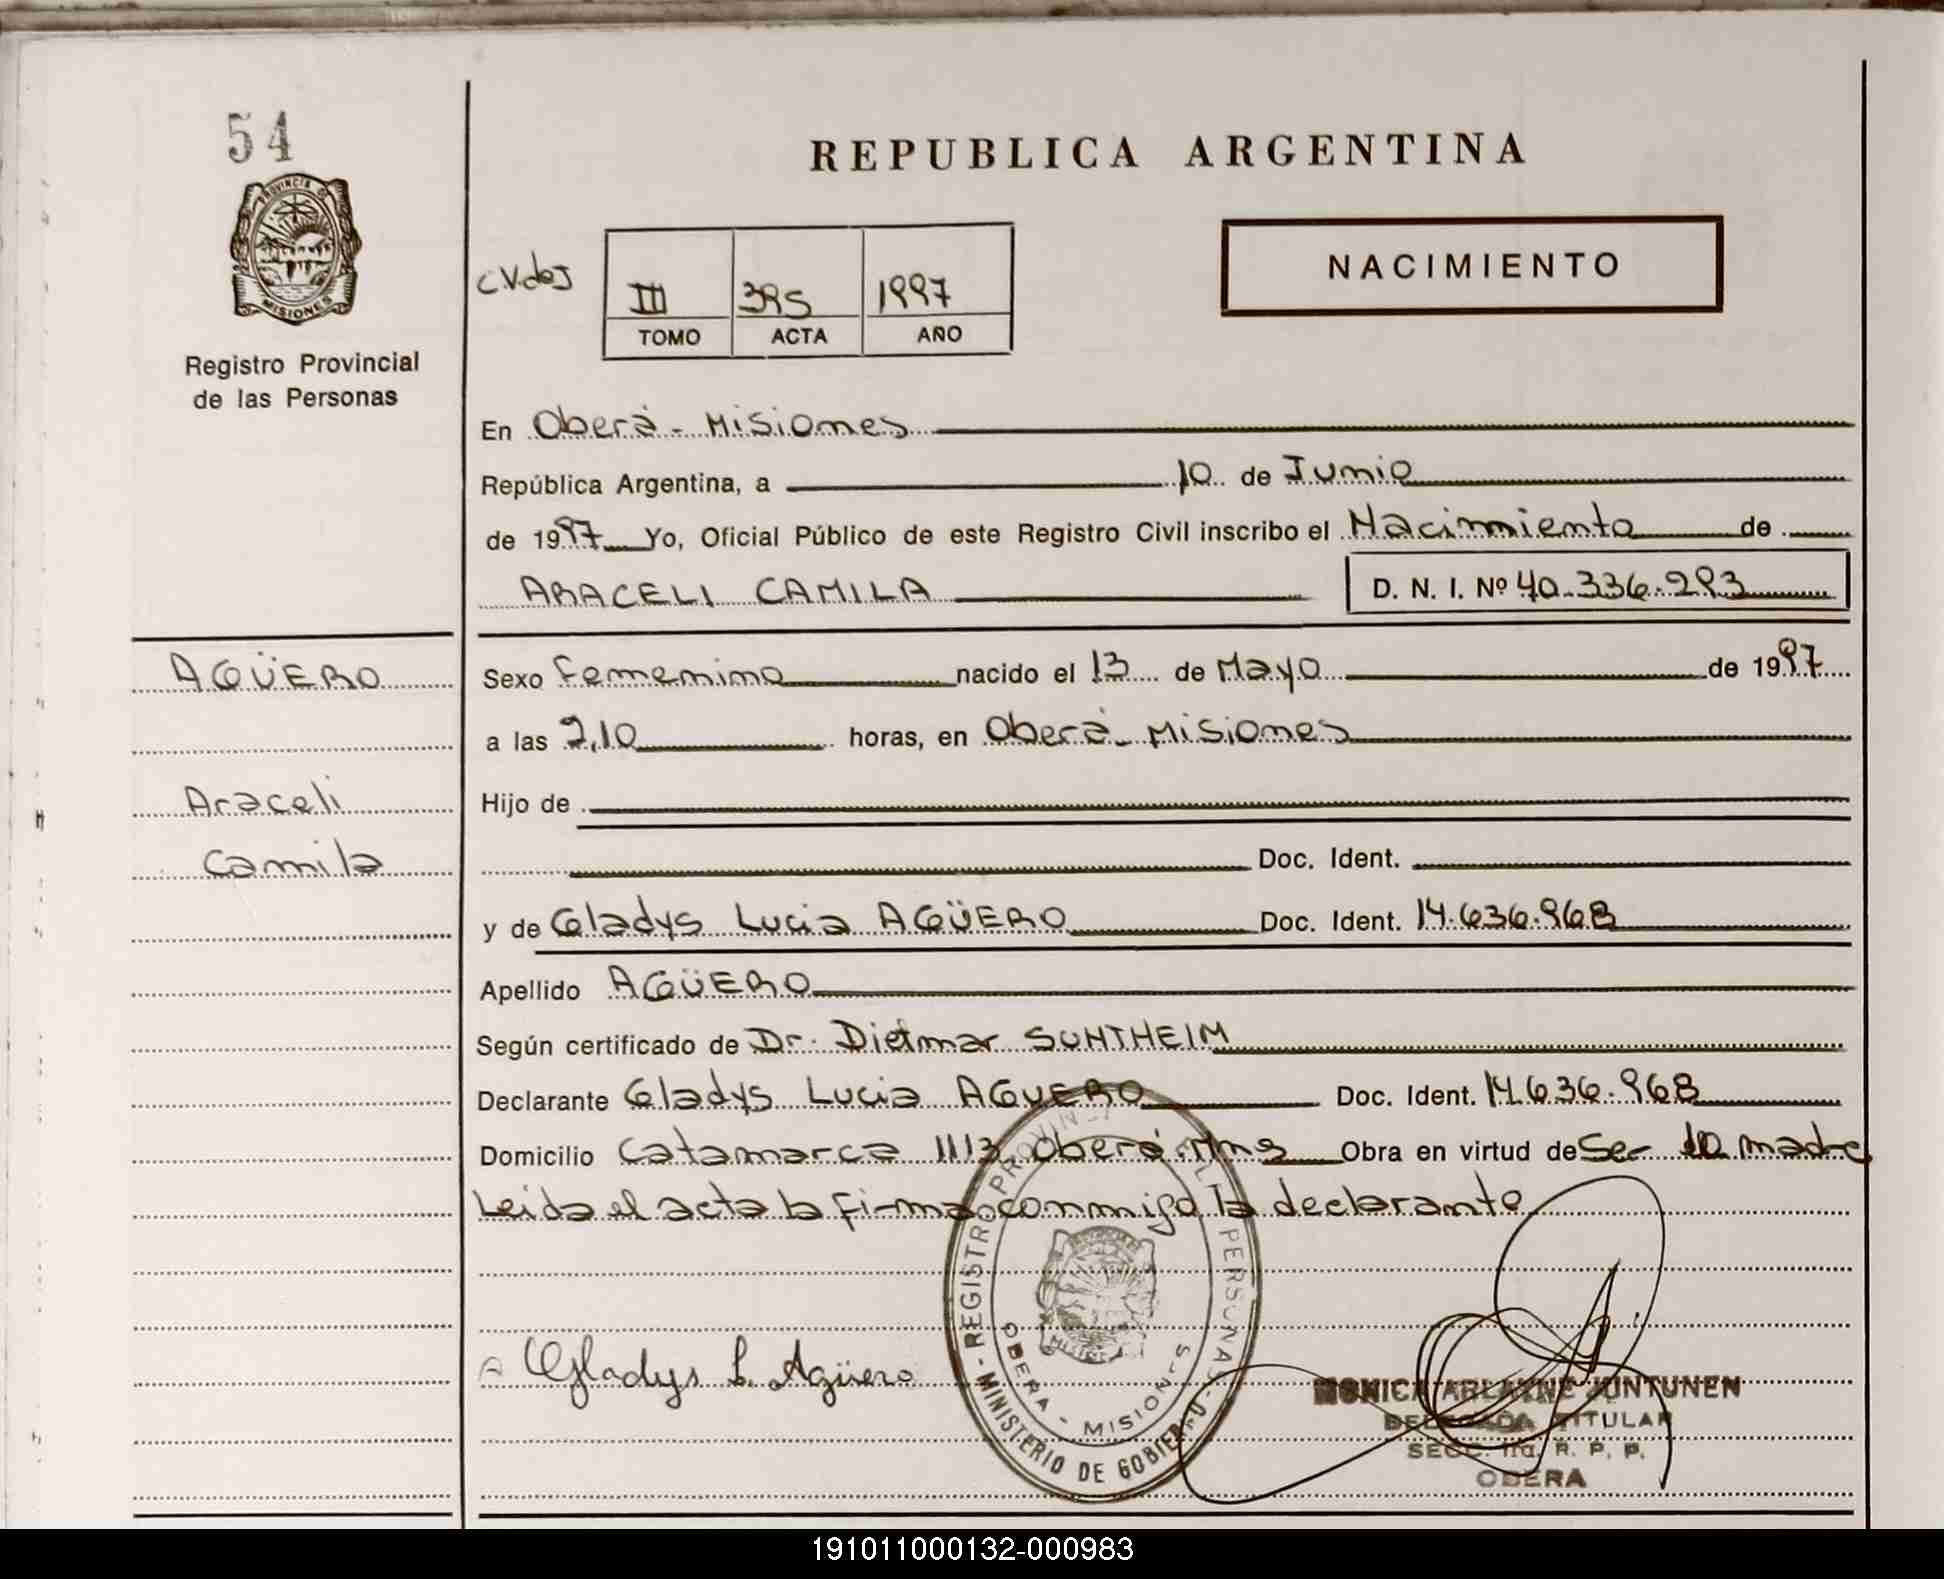 54
PROVINCIA DE
MISIONES
Registro Provincial
de las Personas
REPUBLICA ARGENTINA
III 395 1997
TOMO ACTA AÑO
NACIMIENTO
En Oberá - Misiones
República Argentina, a 10 de Junio
de 1997 Yo, Oficial Público de este Registro Civil inscribo el Nacimiento de
ARACELI CAMILA D. N. I. Nº 40.336.293
AGÜERO
Araceli
Camila
Sexo Femenino nacido el 13 de Mayo de 1997
a las 2,10 horas, en Oberá - Misiones
Hijo de
Doc. Ident.
y de Gladys Lucia AGÜERO Doc. Ident. 14.636.968
Apellido AGÜERO
Según certificado de Dr. Dietmar SUNTHEIM
Declarante Gladys Lucia AGUERO Doc. Ident. 14.636.968
Domicilio Catamarca 1113 Oberá Mnes Obra en virtud de Ser la madre
Leida el acta la firma conmigo la declarante
REGISTRO PROVINCIAL PERSONAS - MINISTERIO DE GOBIERNO -
OBERA - MISIONES
Gladys L. Agüero
MONICA ARLAINE JUNTUNEN
DELEGADA TITULAR
SECC. R. P. P.
OBERA
191011000132-000983